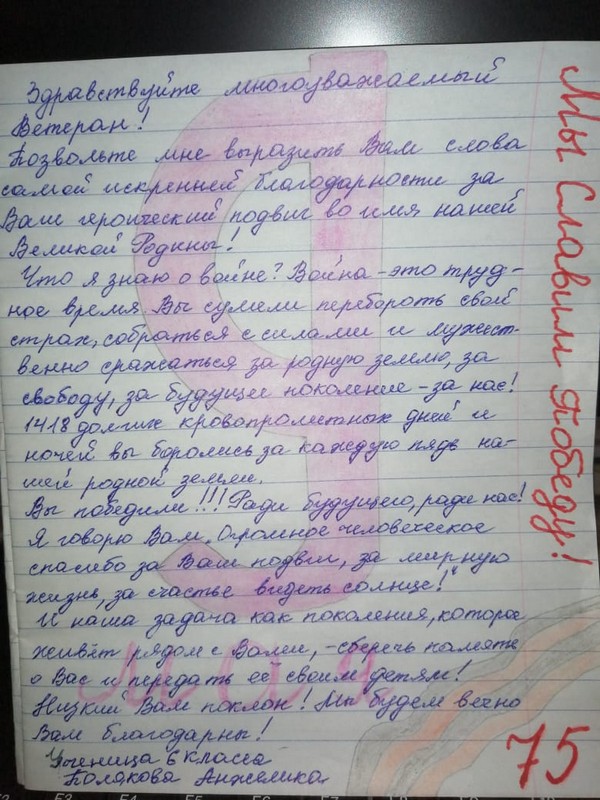 Здравствуйте многоуважаемый
Ветеран!
Позвольте мне выразить Вам слова
самой искренней благодарности за
Ваш героический подвиг во имя нашей
Великой Родины!
Что я знаю о войне? Война - это труд-
ное время. Вы сумели перебороть свой
страх, собраться с силами и мужест-
венно сражаться за родную землю, за
свободу, за будущее поколение - за нас!
1418 долгих кровопролитных дней и
ночей вы боролись за каждую пядь на-
шей родной земли.
Вы победили!!! Ради будущего, ради нас!
Я говорю Вам „Огромное человеческое
спасибо за Ваш подвиг, за мирную
жизнь, за счастье видеть солнце!"
И наша задача как поколения, которое
живёт рядом с Вами, - сберечь память
о Вас и передать её своим детям!
Низкий Вам поклон! Мы будем вечно
Вам благодарны!
Ученица 6 класса
Полякова Анжелика
Мы Славим Победу!
9
мая
75